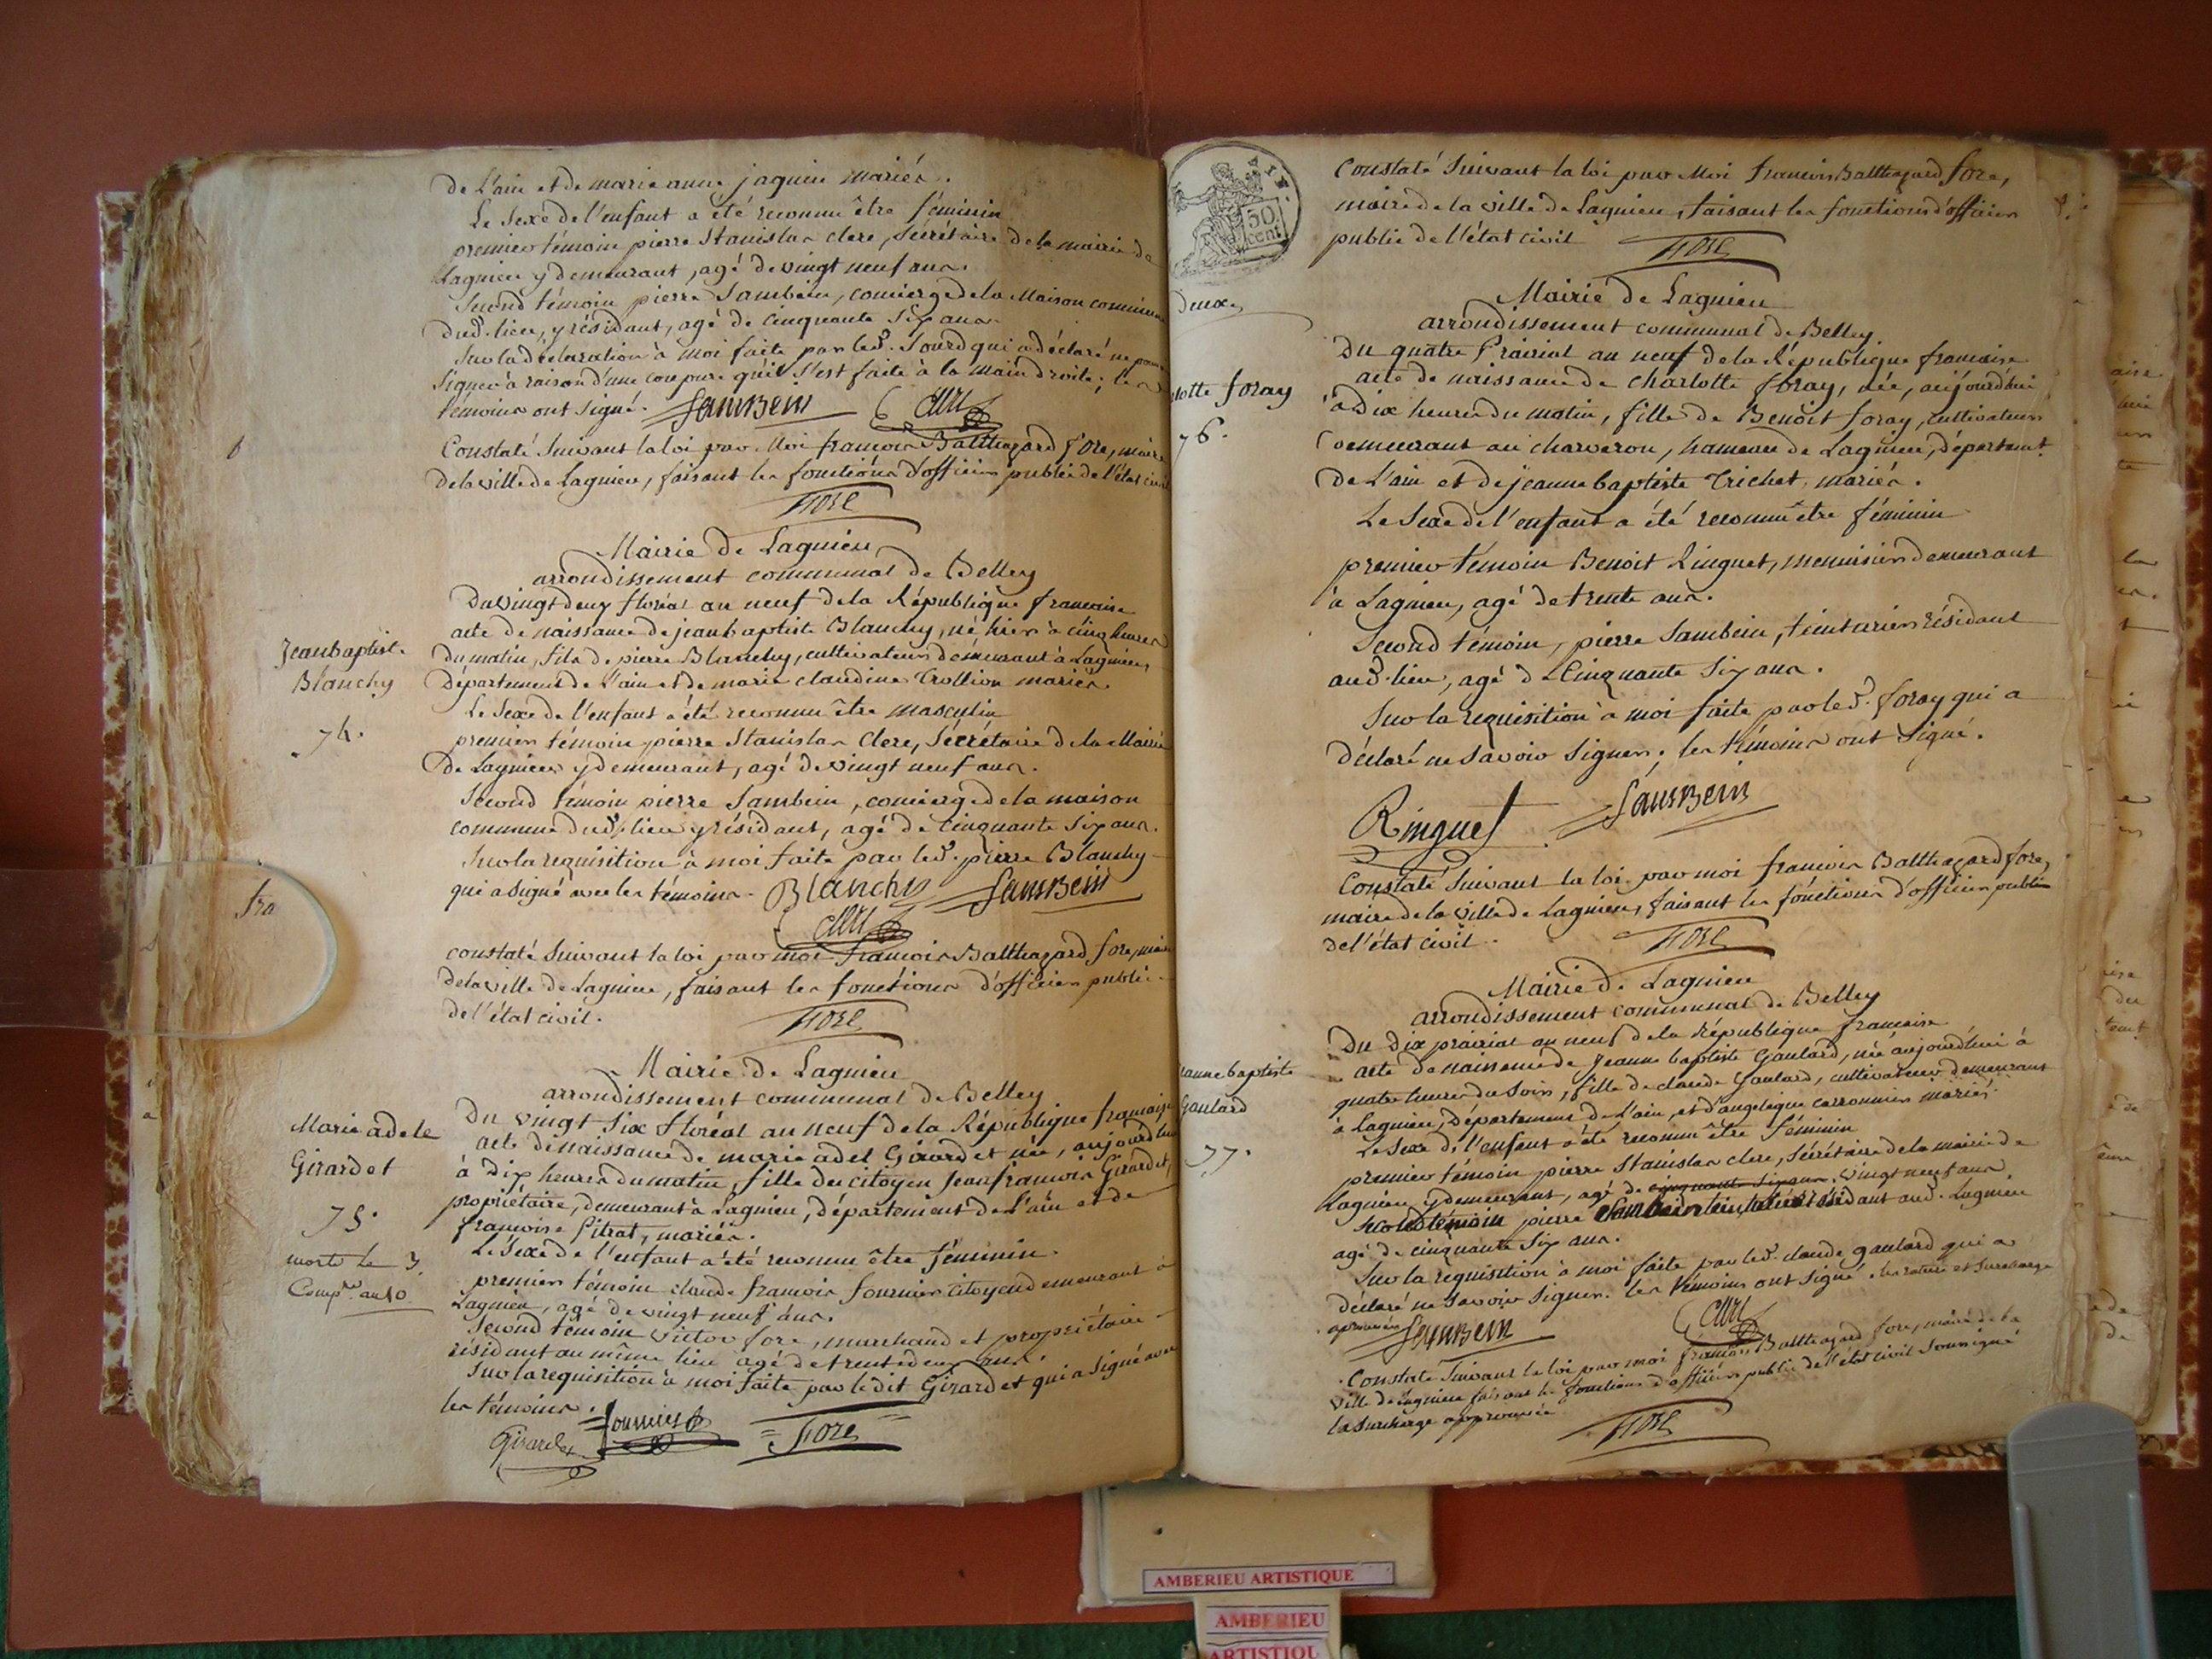 de l'ain et de marie anne jaquin mariés.
Le Sexe de l'enfant a été reconnu être féminin
premier témoin pierre Stanislas clerc, Secrétaire de la mairie de
Lagnieu y demeurant, agé de vingt neuf ans.
Second témoin pierre Sambein, concierge de la Maison commune
dud. lieu, y résidant, agé de cinquante Six ans
Sur la déclaration à moi faite par led. Sourd qui a déclaré ne pouvoir
Signer à raison d'une coupure qu'il s'est faite à la main droite; les
témoins ont signé. Sambein Clerc
Constaté Suivant la loi par Moi francois Balthazard fore, maire
de la ville de Lagnieu, faisant les fonctions d'officier public de l'état civil
Fore
Mairie de Lagnieu
arrondissement communal de Belley
Du vingt deux floréal an neuf de la République francaise
acte de naissance de jean baptiste Blanchy, né hier à cinq heures
du matin, fils de pierre Blanchy, cultivateur demeurant à Lagnieu,
département de l'ain et de marie claudine Trollion mariés
Le Sexe de l'enfant a été reconnu être masculin
premier témoin pierre Stanislas Clerc, Sécrétaire de la Mairie
De Lagnieu y demeurant, agé de vingt neuf ans.
Second témoin pierre Sambein, concierge de la maison
commune dud. lieu y résidant, agé de cinquante Six ans.
Sur la requisition à moi faite par led. pierre Blanchy
qui a signé avec les témoins. Blanchy Sambein
Clerc
constaté Suivant la loi par moi francois Balthazard fore, maire
de la ville de Lagnieu, faisant les fonctions d'officier public
de l'état civil.
Fore
Jean baptiste
Blanchy
74.
Mairie de Lagnieu
arrondissement communal de Belley
Du vingt Six floréal an neuf de la République francaise
acte de naissance de marie adel Girardet née, aujourd'hui
à dix heures du matin, fille du citoyen Jean francois Girardet,
propriétaire, demeurant à Lagnieu, département de l'ain et de
francoise Pitrat, mariés.
Le Sexe de l'enfant a été reconnu être féminin.
premier témoin claude francois fournier citoyen demeurant à
Lagnieu, agé de vingt neuf ans.
Second témoin victor fore, marchand et propriétaire
résidant au même lieu agé de trente deux ans.
Sur la requisition à moi faite par ledit Girardet qui a Signé avec
les témoins.
Girardet fournier Fore
Marie adele
Girardet
75.
morte le 3.
Comp.re an 10
fra
50
cent
Constaté Suivant la loi par Moi francois Balthazard fore,
maire de la ville de Lagnieu, faisant les fonctions d'officier
public de l'état civil Fore
deux
Mairie de Lagnieu
arrondissement communal de Belley
Du quatre Prairial an neuf de la République francaise
acte de naissance de charlotte foray, née, aujourd'hui
à dix heures du matin, fille de Benoit foray, cultivateur
demeurant au charveron, hameau de Lagnieu, départemt.
de l'ain et de jeanne baptiste Trichet, mariés.
Le Sexe de l'enfant a été reconnu être féminin
premier témoin Benoit Ringuet, menuisier demeurant
à Lagnieu, agé de trente ans.
Second témoin, pierre Sambein, teinturier résidant
aud. lieu, agé de Cinquante Six ans.
Sur la requisition à moi faite par led. foray qui a
déclaré ne Savoir Signer; les témoins ont signé.
Ringuet Sambein
Constaté Suivant la loi par moi francois Balthazard fore,
maire de la ville de Lagnieu, faisant les fonctions d'officier public
de l'état civil. Fore
lotte foray
76.
Mairie de Lagnieu
arrondissement communal de Belley
Du dix prairial an neuf de la République francaise
acte de naissance de Jeanne baptiste Gaulard, née aujourd'hui à
quatre heures du Soir, fille de claude Gaulard, cultivateur demeurant
à Lagnieu, département de l'ain, et d'angelique carronnier mariés.
Le Sexe de l'enfant a été reconnu être féminin
premier témoin pierre Stanislas clerc, Sécrétaire de la mairie de
Lagnieu y demeurant, agé de cinquante Six ans vingt neuf ans
Second témoin pierre Sambein teinturier résidant aud. Lagnieu
agé de cinquante Six ans.
Sur la requisition à moi faite par led. claude gaulard qui a
déclaré ne Savoir Signer. les témoins ont signé. les rature et Surcharge
aprouvées Sambein Clerc
Constaté Suivant la loi par moi francois Balthazard fore, maire de la
ville de Lagnieu faisant les fonctions d'officier public de l'état civil Soussigné
la Surcharge approuvée Fore
anne baptiste
Gaulard
77.
AMBERIEU ARTISTIQUE
AMBERIEU
ARTISTIQU